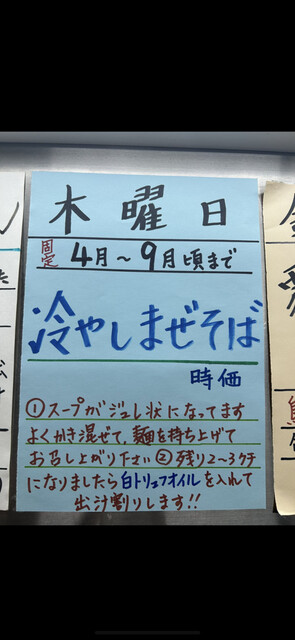 木曜日
固定 4月～9月頃まで
冷やしまぜそば
時価
①スープがジュレ状になってます
よくかき混ぜて、麺を持ち上げて
お召し上がり下さい②残り2～3クチ
になりましたら白トリュフオイルを入れて
出汁割りします!!